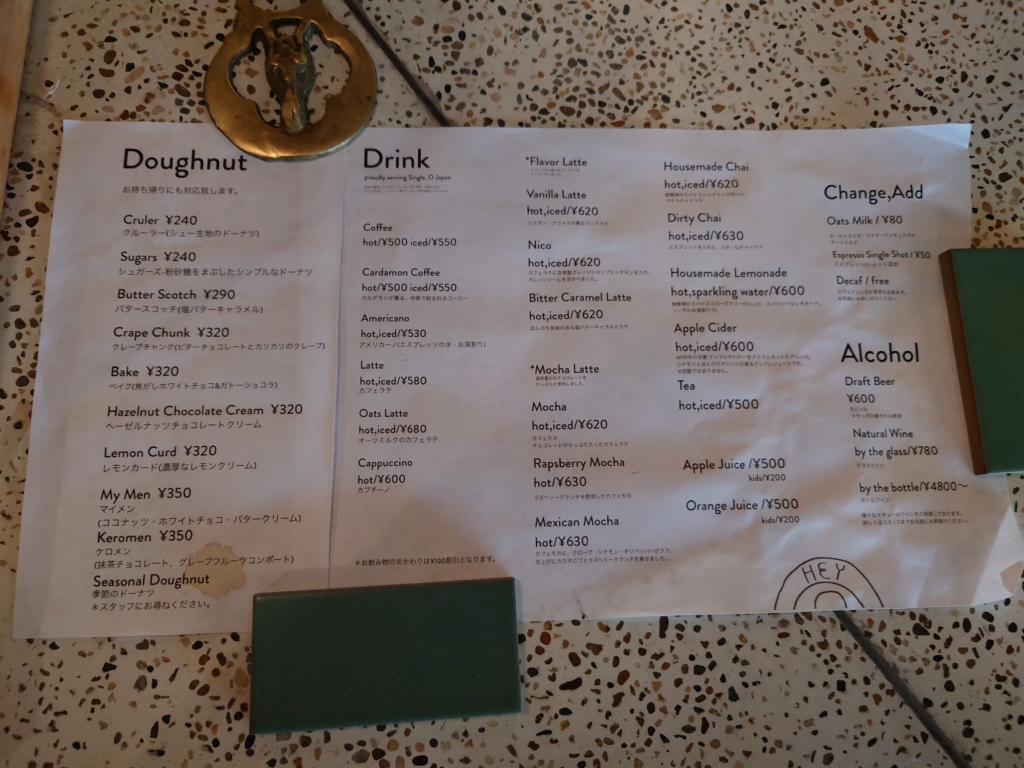 Doughnut
お持ち帰りにも対応致します。
Cruler ¥240
クルーラー(シュー生地のドーナツ)
Sugars ¥240
シュガーズ-粉砂糖をまぶしたシンプルなドーナツ
Butter Scotch ¥290
バタースコッチ(塩バターキャラメル)
Crape Chunk ¥320
クレープチャンク(ビターチョコレートとカリカリのクレープ)
Bake ¥320
ベイク(焦がしホワイトチョコ&ガトーショコラ)
Hazelnut Chocolate Cream ¥320
ヘーゼルナッツチョコレートクリーム
Lemon Curd ¥320
レモンカード(濃厚なレモンクリーム)
My Men ¥350
マイメン
(ココナッツ・ホワイトチョコ・バタークリーム)
Keromen ¥350
ケロメン
(抹茶チョコレート、グレープフルーツコンポート)
Seasonal Doughnut
季節のドーナツ
＊スタッフにお尋ねください。
Drink
proudly serving Single, O Japan
Coffee
hot/¥500 iced/¥550
Cardamon Coffee
hot/¥500 iced/¥550
カルダモンが薫る、中東で飲まれるコーヒー
Americano
hot,iced/¥530
アメリカーノ(エスプレッソの水・お湯割り)
Latte
hot,iced/¥580
カフェラテ
Oats Latte
hot,iced/¥680
オーツミルクのカフェラテ
Cappuccino
hot/¥600
カプチーノ
＊お飲み物のおかわりは¥100割引となります。
*Flavor Latte
Vanilla Latte
hot,iced/¥620
Nico
hot,iced/¥620
Bitter Caramel Latte
hot,iced/¥620
ほんのり苦味のある塩バターキャラメルラテ
*Mocha Latte
Mocha
hot,iced/¥620
カフェモカ
チョコレートがたっぷり入ったカフェラテ
Rapsberry Mocha
hot/¥630
ラズベリークランチを使用したカフェモカ
Mexican Mocha
hot/¥630
カフェモカに、クローブ・シナモン・チリペッパーが入り、
仕上げにカカオニブとラズベリークランチを乗せました。
Housemade Chai
hot,iced/¥620
Dirty Chai
hot,iced/¥630
エスプレッソを入れた、ビターなチャイラテ
Housemade Lemonade
hot,sparkling water/¥600
Apple Cider
hot,iced/¥600
Tea
hot,iced/¥500
Apple Juice /¥500
kids/¥200
Orange Juice /¥500
kids/¥200
Change,Add
Oats Milk / ¥80
Espresso Single Shot / ¥50
エスプレッソショット追加
Decaf / free
Alcohol
Draft Beer
¥600
生ビール
Natural Wine
by the glass/¥780
グラスワイン
by the bottle/¥4800〜
ボトルワイン
HEY